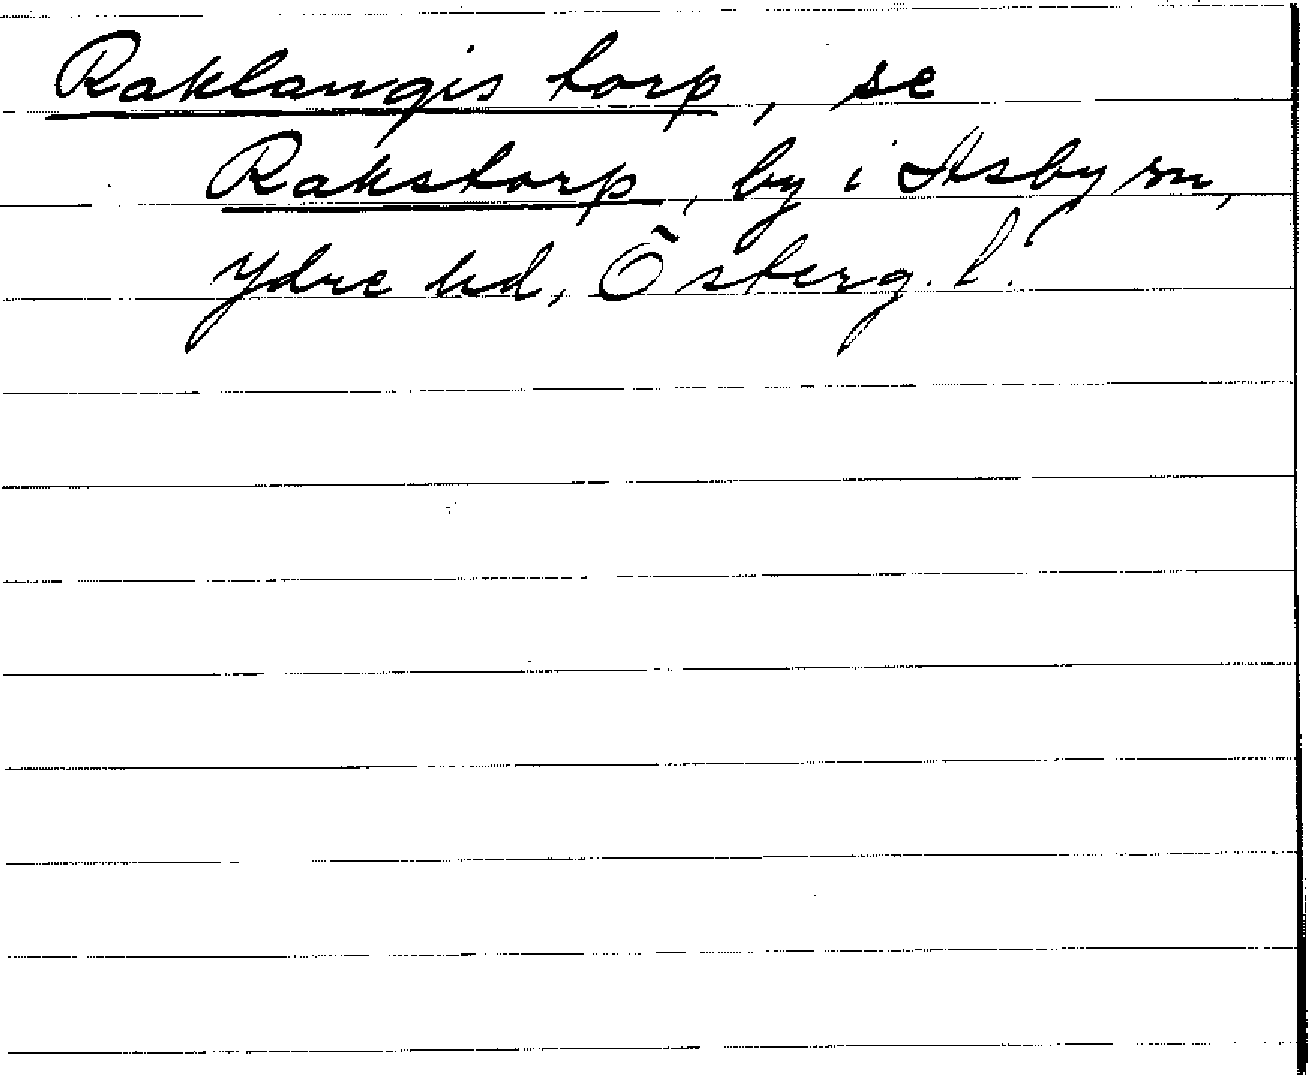 Raklangis torp, se
Rakstorp, by i Asby sn,
Ydre hd, Österg. l.